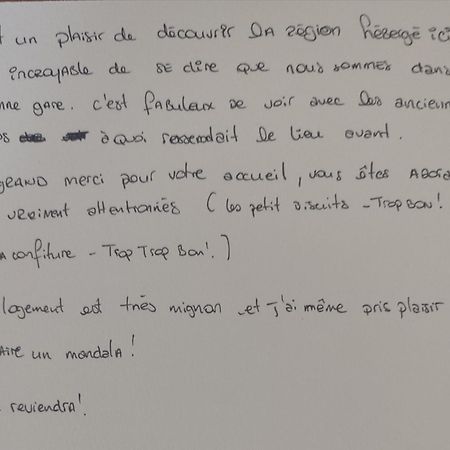 t un plaisir de découvrir la région hébergé ici
incroyable de se dire que nous sommes dans
nne gare. c'est fabuleux de voir avec les ancien
à quoi ressemblait le lieu avant.
GRAND merci pour votre accueil, vous êtes ADOR
vraiment attentionnés (les petit biscuits - Trop Bon!
a confiture - Trop Trop Bon!)
logement est très mignon et j'ai même pris plaisir
aire un mandala!
reviendra!